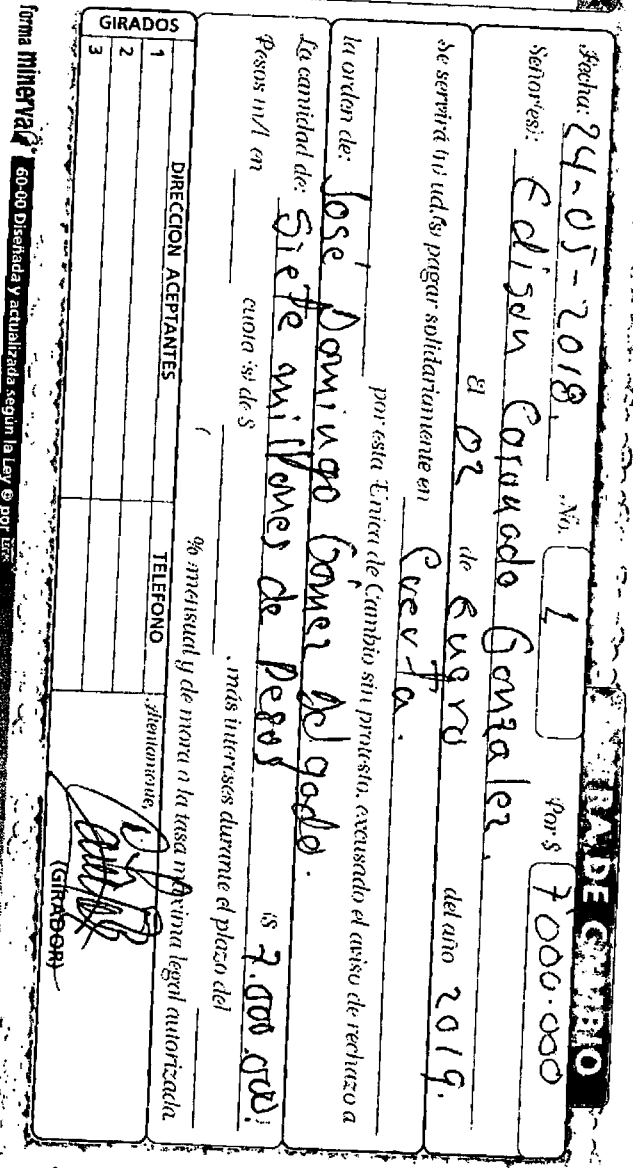 LETRA DE CAMBIO
Fecha: 24-05-2018. No. 1 Por $ 7'000.000
Señor(es): Edison Coronado Gonzalez.
El 02 de Enero del año 2019.
Se servirá (n) ud.(s) pagar solidariamente en Cucuta.
por esta Unica de Cambio sin protesto, excusado el aviso de rechazo a
la orden de: José Domingo Gómez Delgado.
La cantidad de: Siette millones de pesos ($ 7.000.000)
Pesos m/l en cuota (s) de $ , más intereses durante el plazo del
( % mensual y de mora a la tasa máxima legal autorizada
GIRADOS
DIRECCION ACEPTANTES TELEFONO
1
2
3
Atentamente,
(GIRADOR)
forma minerva 60-00 Diseñada y actualizada según la Ley © por